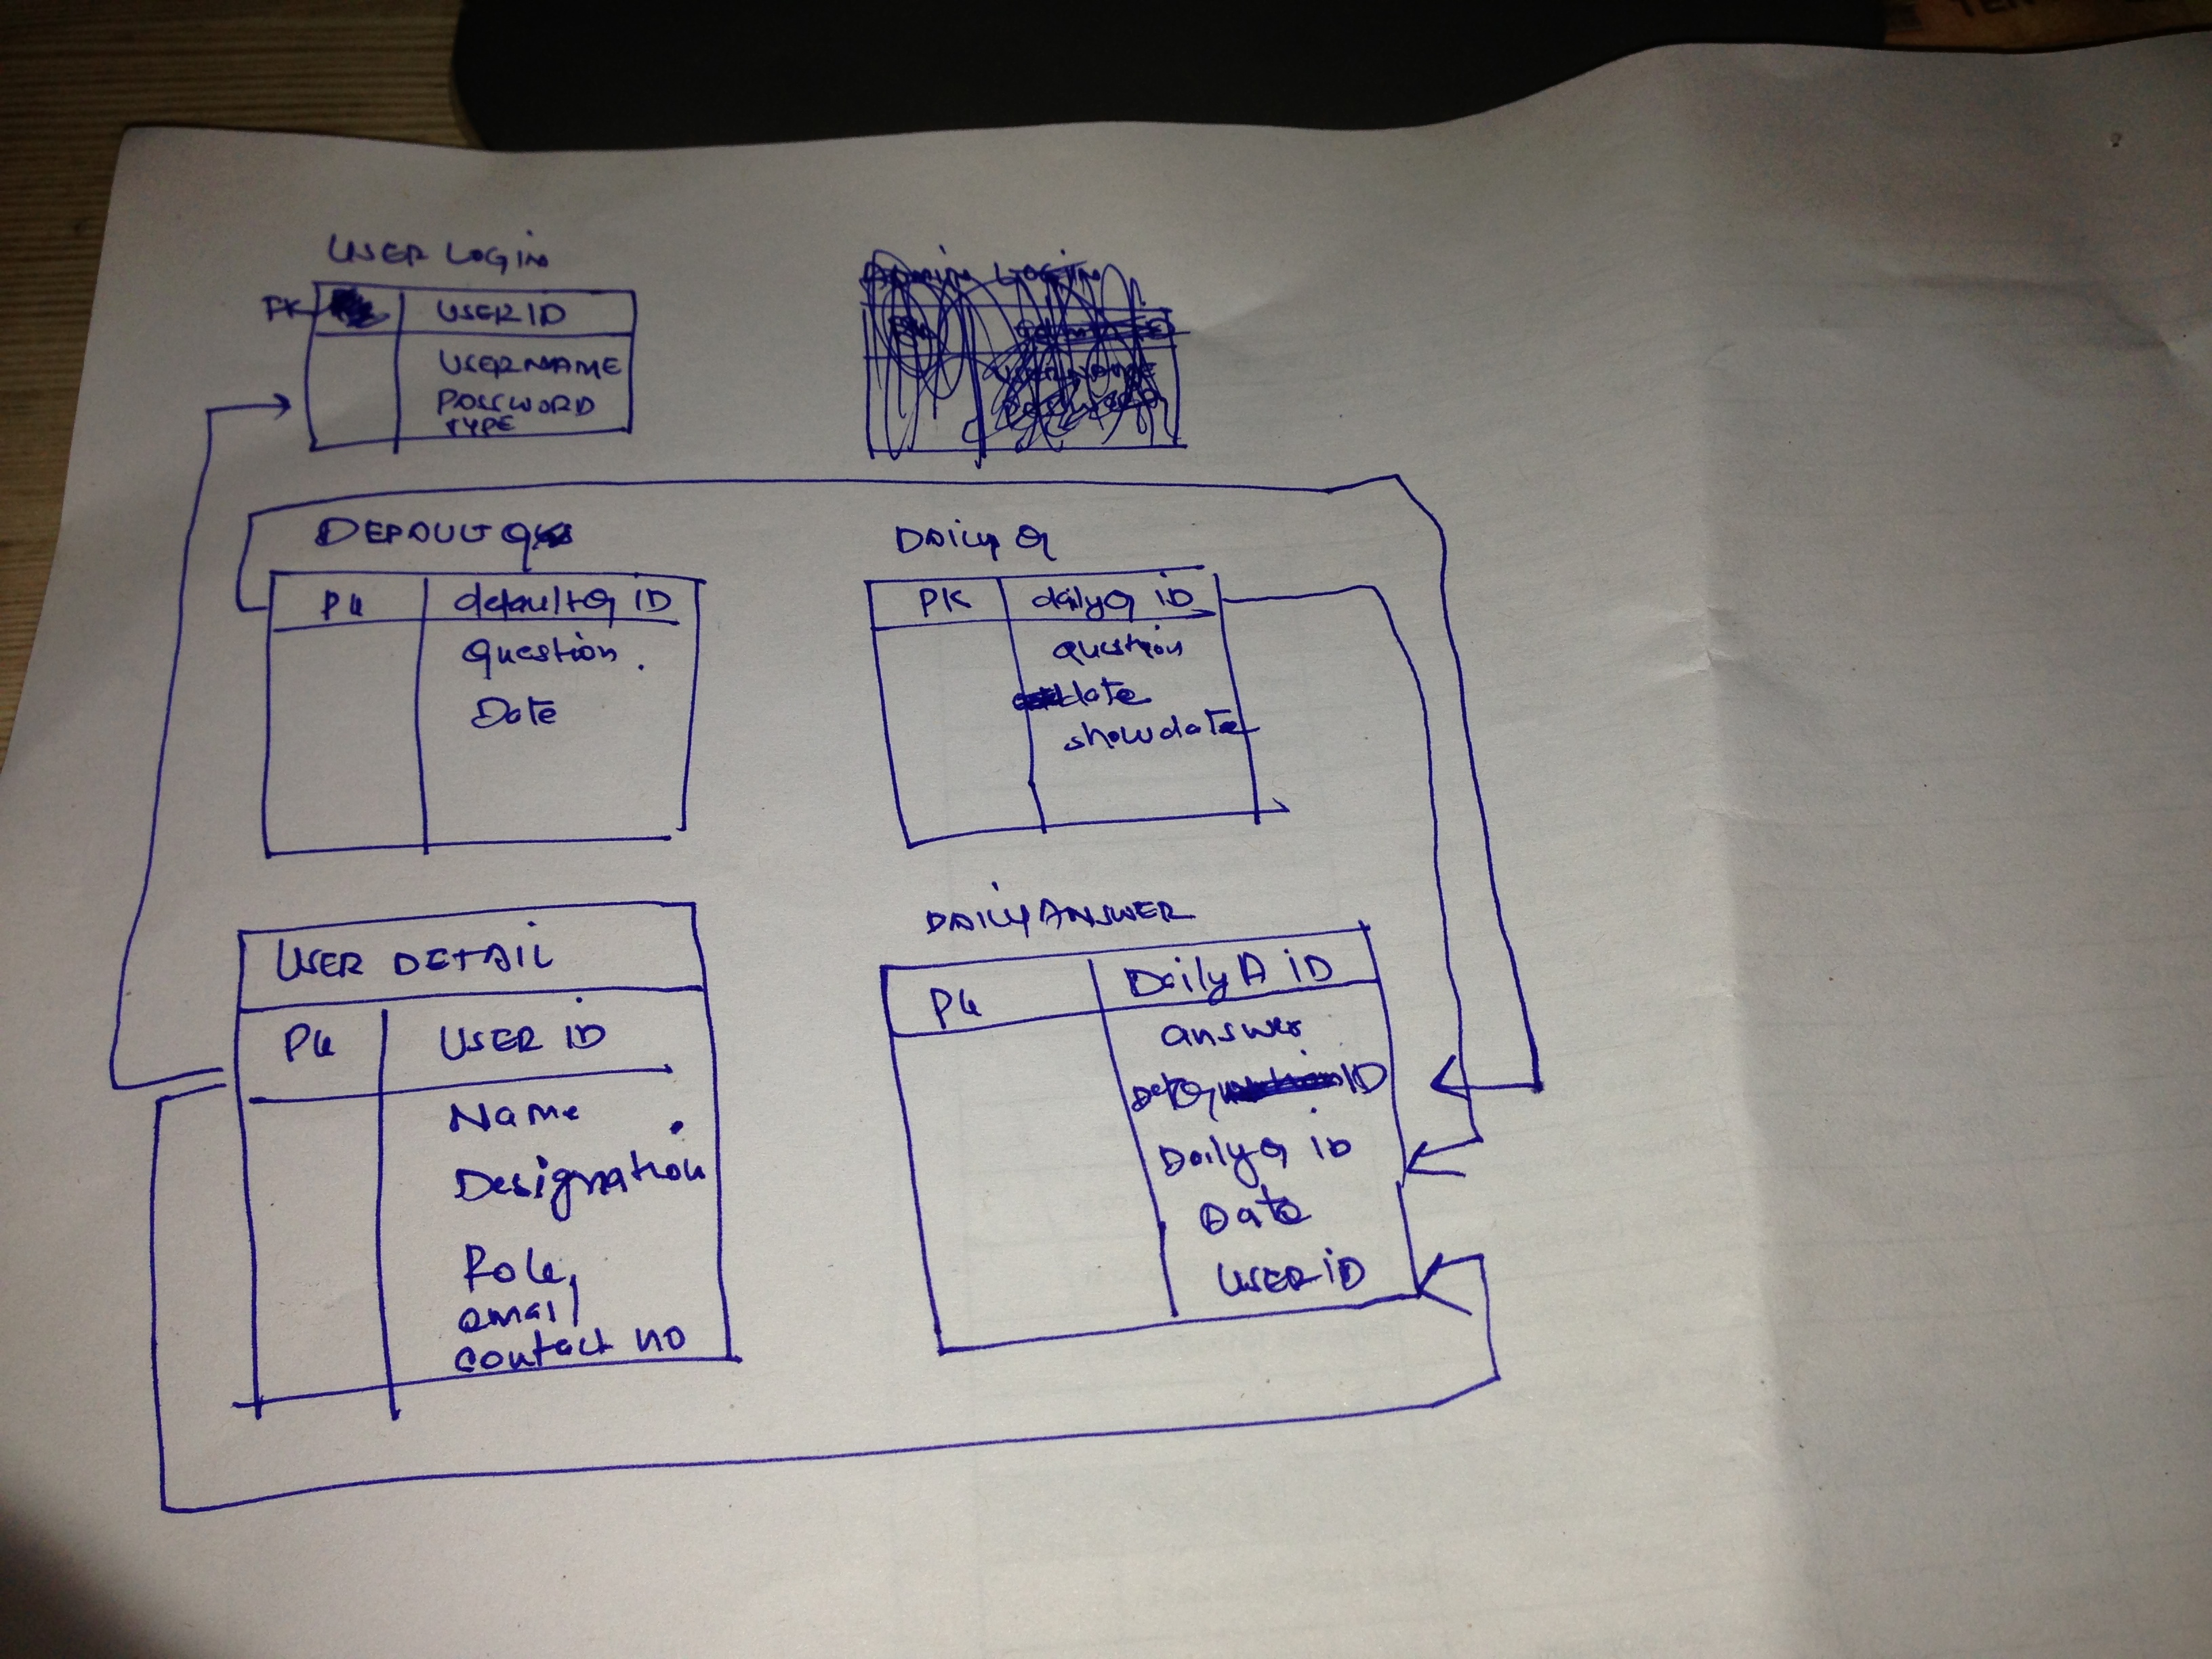 USER LOGIN
PK USER ID
USERNAME
PASSWORD
TYPE
Admin Login
USERNAME
DEFAULT Q
PK defaultQ ID
Question
Date
DAILY Q
PK dailyQ ID
question
date
showdate
USER DETAIL
PK USER ID
Name
Designation
Role,
email
contact no
DAILY ANSWER
PK Daily A ID
answer
ID
DailyQ ID
Date
USER ID